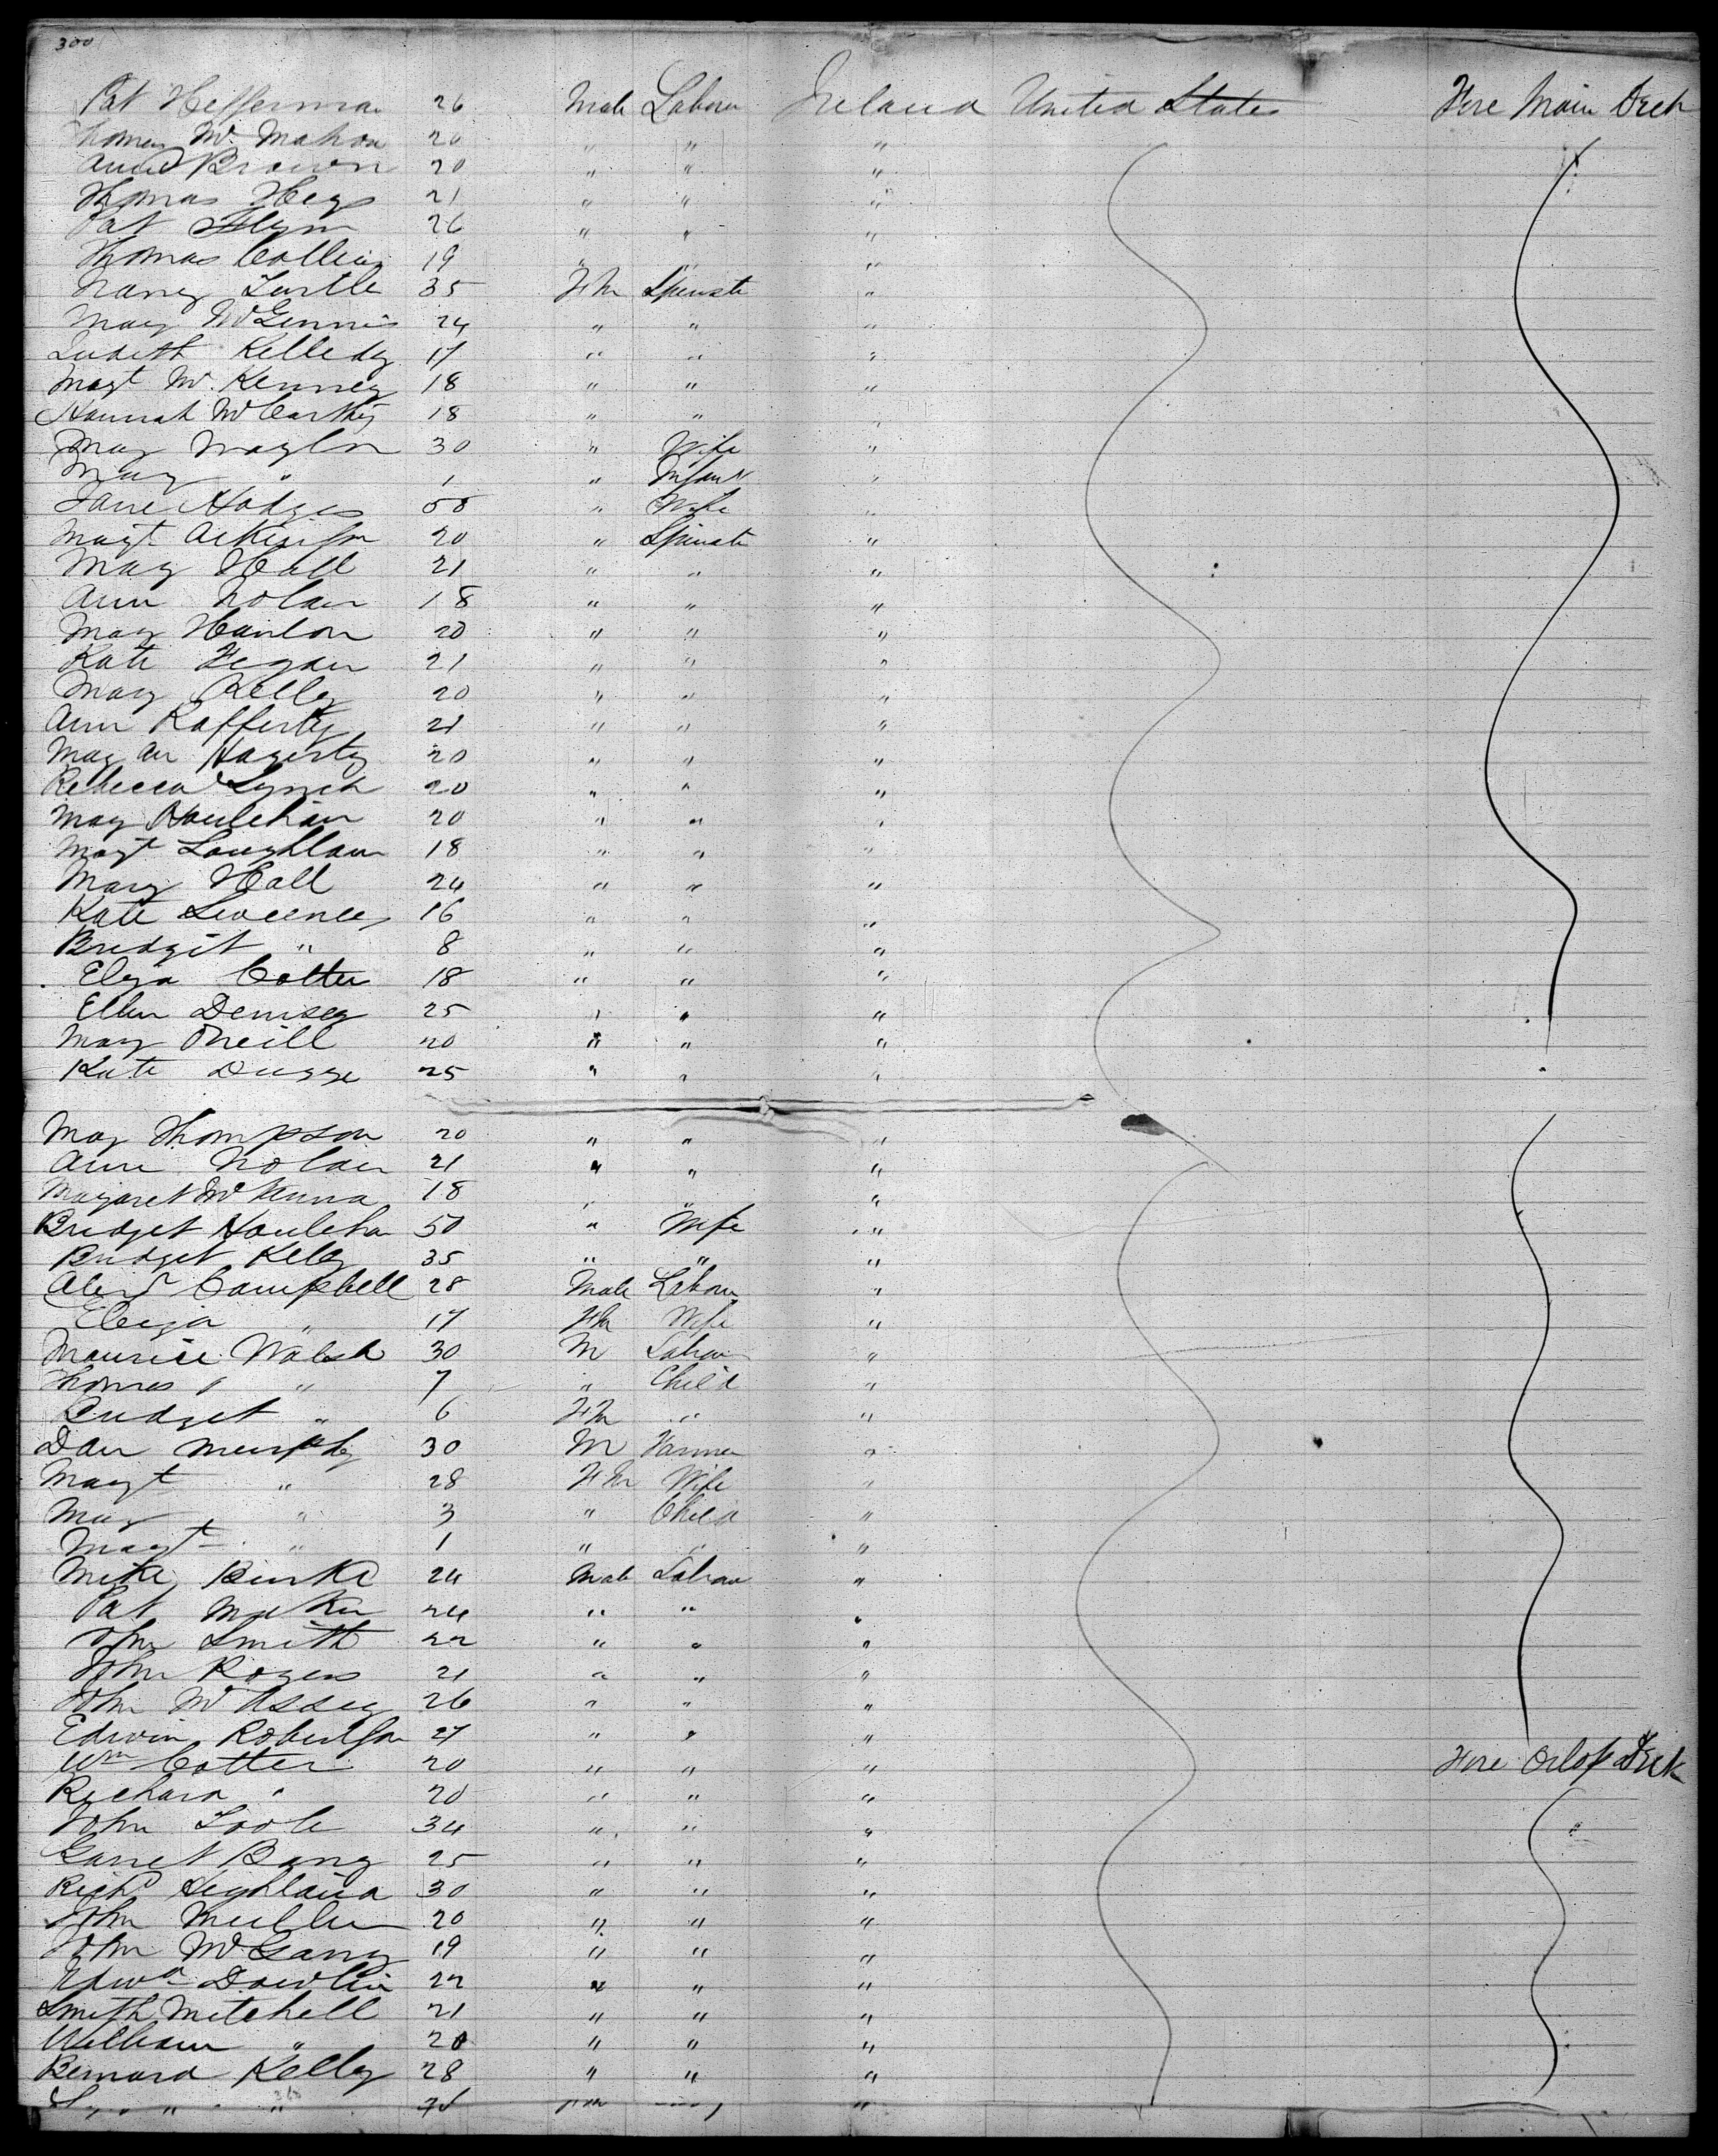 300
Pat Heffernan 26 Male Labour Ireland United States Fore Main Deck
Thomas Mc Mahon 20 " " "
Brown 20 " " "
Thomas Hays 21 " " "
Pat Flynn 26 " " "
Thomas Collins 19 " " "
Nancy Turtle 35 Fm Spinste "
Mary McGinnis 24 " " "
Judith Kelledy 17 " " "
Magt Mc Kenney 18 " " "
Hannah McCarthy 18 " " "
Mary 30 " Wife "
Mary " 1 " Infant "
Jane Hodges 50 " Wife "
Magt Atkinson 20 " Spinste "
Mary Hall 21 " " "
Ann Nolan 18 " " "
Mary Hanlon 20 " " "
Kate Fegan 21 " " "
Mary Kelly 20 " " "
Ann Rafferty 21 " " "
Mary An Hagerty 20 " " "
Rebecca Lynch 20 " " "
Mary Houlehan 20 " " "
Magt Loughlan 18 " " "
Mary Hall 24 " " "
Kate 16 " " "
Bridgit " 8 " " "
Eliza Cotter 18 " " "
Ellen Demsey 25 " " "
Mary ONeill 20 " " "
Kate 25 " " "
Mary Thompson 20 " " "
Ann Nolan 21 " " "
Margaret McKenna 18 " " "
Bridget Houleha 50 " Wife "
Bridget Kelly 35 " " "
Alexr Campbell 28 Male Labour "
Eliza " 17 Fm Wife "
Maurice Walsh 30 M Labour "
Thomas " 7 " Child "
Bridget " 6 Fm " "
Dan Murphy 30 M Farmer "
Magt " 28 Fm Wife "
Mary " 3 " Child "
Magt " 1 " " "
Mike Burke 24 Male Labour "
Pat 24 " " "
John Smith 22 " " "
John Rogers 21 " " "
John 26 " " "
Edwin Robertson 27 " " "
Wm Cotter 20 " " " Fore Orlop Deck
Richard " 20 " " "
John Toole 34 " " "
Garret Barry 25 " " "
Richd 30 " " "
John Mullen 20 " " "
John McGarry 19 " " "
Edwd Dowlin 22 " " "
Smith Mitchell 21 " " "
William " 20 " " "
Bernard Kelly 28 " " "